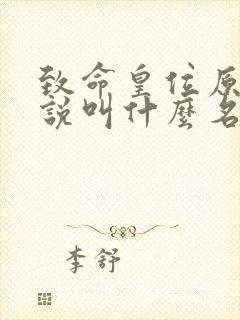 致命皇位原
說叫什麼名
李舒